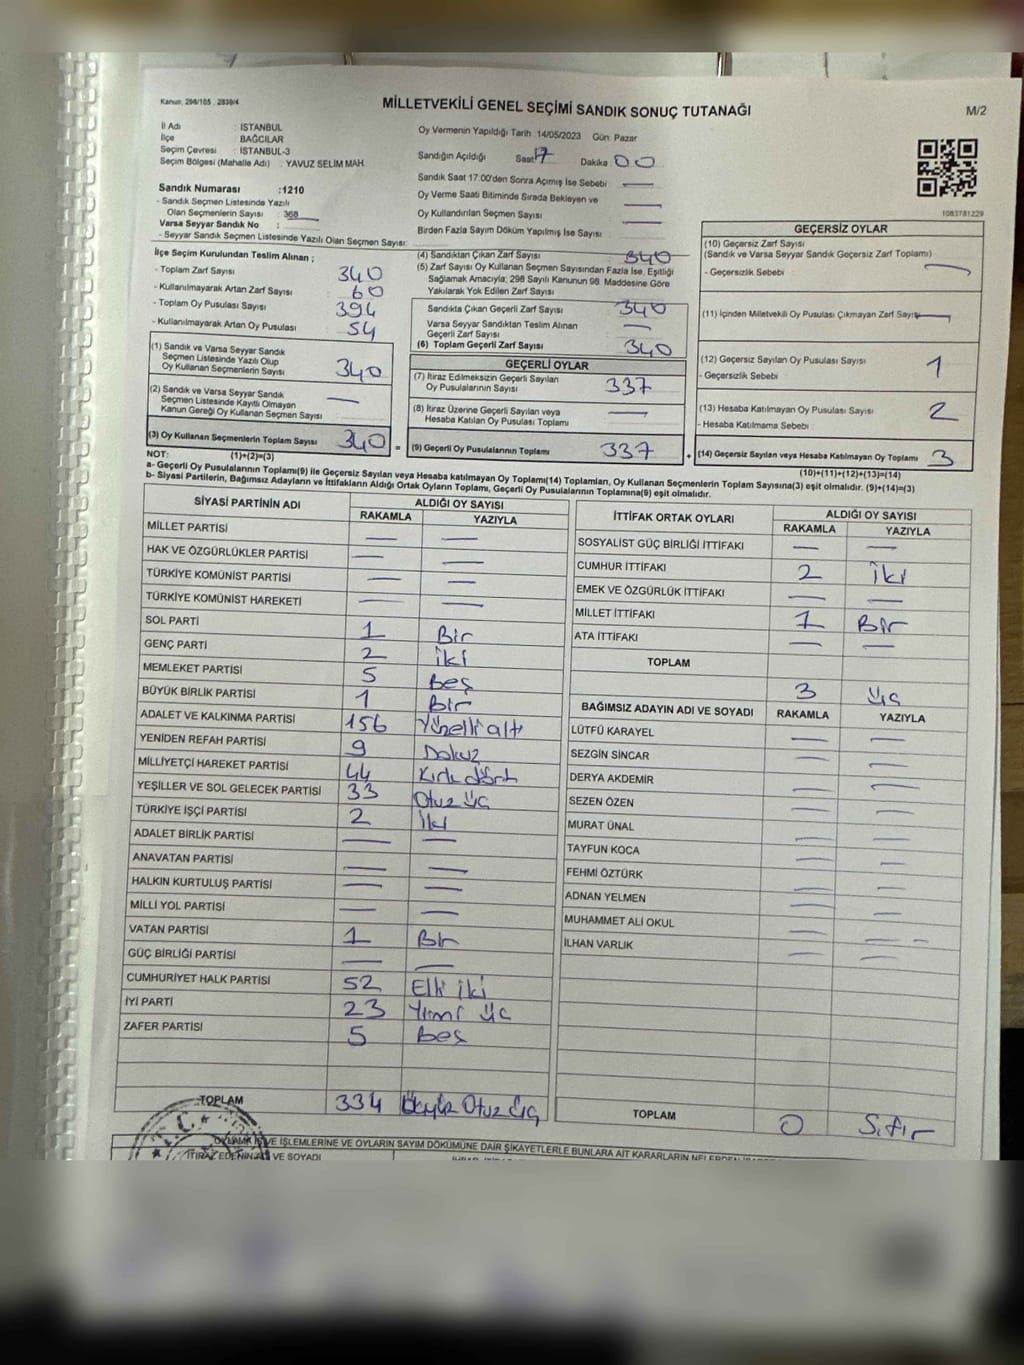 Kanun: 298/105 , 2839/4
MİLLETVEKİLİ GENEL SEÇİMİ SANDIK SONUÇ TUTANAĞI
M/2
İl Adı : İSTANBUL
İlçe : BAĞCILAR
Seçim Çevresi : İSTANBUL-3
Seçim Bölgesi (Mahalle Adı) : YAVUZ SELİM MAH.
Oy Vermenin Yapıldığı Tarih 14/05/2023 Gün: Pazar
Sandığın Açıldığı Saat 17 Dakika 00
Sandık Saat 17:00'den Sonra Açımış İse Sebebi —
Oy Verme Saati Bitiminde Sırada Bekleyen ve
Oy Kullandırılan Seçmen Sayısı —
Birden Fazla Sayım Döküm Yapılmış İse Sayısı —
1083781229
Sandık Numarası :1210
- Sandık Seçmen Listesinde Yazılı
Olan Seçmenlerin Sayısı : 368
Varsa Seyyar Sandık No :
- Seyyar Sandık Seçmen Listesinde Yazılı Olan Seçmen Sayısı:
İlçe Seçim Kurulundan Teslim Alınan ;
- Toplam Zarf Sayısı 340
- Kullanılmayarak Artan Zarf Sayısı 60
- Toplam Oy Pusulası Sayısı 394
- Kullanılmayarak Artan Oy Pusulası 54
(1) Sandık ve Varsa Seyyar Sandık
Seçmen Listesinde Yazılı Olup
Oy Kullanan Seçmenlerin Sayısı 340
(2) Sandık ve Varsa Seyyar Sandık
Seçmen Listesinde Kayıtlı Olmayan
Kanun Gereği Oy Kullanan Seçmen Sayısı —
(3) Oy Kullanan Seçmenlerin Toplam Sayısı 340 =
(4) Sandıktan Çıkan Zarf Sayısı 340
(5) Zarf Sayısı Oy Kullanan Seçmen Sayısından Fazla İse, Eşitliği
Sağlamak Amacıyla; 298 Sayılı Kanunun 98. Maddesine Göre
Yakılarak Yok Edilen Zarf Sayısı
Sandıkta Çıkan Geçerli Zarf Sayısı 340
Varsa Seyyar Sandıktan Teslim Alınan
Geçerli Zarf Sayısı —
(6) Toplam Geçerli Zarf Sayısı 340
GEÇERLİ OYLAR
(7) İtiraz Edilmeksizin Geçerli Sayılan
Oy Pusulalarının Sayısı 337
(8) İtiraz Üzerine Geçerli Sayılan veya
Hesaba Katılan Oy Pusulası Toplamı —
(9) Geçerli Oy Pusulalarının Toplamı 337 +
GEÇERSİZ OYLAR
(10) Geçersiz Zarf Sayısı
(Sandık ve Varsa Seyyar Sandık Geçersiz Zarf Toplamı)
- Geçersizlik Sebebi —
(11) İçinden Milletvekili Oy Pusulası Çıkmayan Zarf Sayısı —
(12) Geçersiz Sayılan Oy Pusulası Sayısı 1
- Geçersizlik Sebebi
(13) Hesaba Katılmayan Oy Pusulası Sayısı 2
- Hesaba Katılmama Sebebi
(14) Geçersiz Sayılan veya Hesaba Katılmayan Oy Toplamı 3
NOT: (1)+(2)=(3)
(10)+(11)+(12)+(13)=(14)
a- Geçerli Oy Pusulalarının Toplamı(9) ile Geçersiz Sayılan veya Hesaba katılmayan Oy Toplamı(14) Toplamları, Oy Kullanan Seçmenlerin Toplam Sayısına(3) eşit olmalıdır. (9)+(14)=(3)
b- Siyasi Partilerin, Bağımsız Adayların ve İttifakların Aldığı Ortak Oyların Toplamı, Geçerli Oy Pusulalarının Toplamına(9) eşit olmalıdır.
SİYASİ PARTİNİN ADI ALDIĞI OY SAYISI
RAKAMLA YAZIYLA
MİLLET PARTİSİ — —
HAK VE ÖZGÜRLÜKLER PARTİSİ — —
TÜRKİYE KOMÜNİST PARTİSİ — —
TÜRKİYE KOMÜNİST HAREKETİ — —
SOL PARTİ 1 Bir
GENÇ PARTİ 2 iki
MEMLEKET PARTİSİ 5 Beş
BÜYÜK BİRLİK PARTİSİ 1 Bir
ADALET VE KALKINMA PARTİSİ 156 Yüzellialtı
YENİDEN REFAH PARTİSİ 9 Dokuz
MİLLİYETÇİ HAREKET PARTİSİ 44 Kırk dört
YEŞİLLER VE SOL GELECEK PARTİSİ 33 Otuz üç
TÜRKİYE İŞÇİ PARTİSİ 2 İki
ADALET BİRLİK PARTİSİ — —
ANAVATAN PARTİSİ — —
HALKIN KURTULUŞ PARTİSİ — —
MİLLİ YOL PARTİSİ — —
VATAN PARTİSİ 1 Bir
GÜÇ BİRLİĞİ PARTİSİ — —
CUMHURİYET HALK PARTİSİ 52 Elli iki
İYİ PARTİ 23 Yirmi üç
ZAFER PARTİSİ 5 Beş
TOPLAM 334 Üçyüz Otuz üç
İTTİFAK ORTAK OYLARI ALDIĞI OY SAYISI
RAKAMLA YAZIYLA
SOSYALİST GÜÇ BİRLİĞİ İTTİFAKI — —
CUMHUR İTTİFAKI 2 İki
EMEK VE ÖZGÜRLÜK İTTİFAKI — —
MİLLET İTTİFAKI 1 Bir
ATA İTTİFAKI — —
TOPLAM 3 üç
BAĞIMSIZ ADAYIN ADI VE SOYADI RAKAMLA YAZIYLA
LÜTFÜ KARAYEL — —
SEZGİN SİNCAR — —
DERYA AKDEMİR — —
SEZEN ÖZEN — —
MURAT ÜNAL — —
TAYFUN KOCA — —
FEHMİ ÖZTÜRK — —
ADNAN YELMEN — —
MUHAMMET ALİ OKUL — —
İLHAN VARLIK — —
TOPLAM 0 Sıfır
T.C.
İŞLEMLERİNE VE OYLARIN SAYIM DÖKÜMÜNE DAİR ŞİKAYETLERLE BUNLARA AİT KARARLARIN
İTİRAZ EDENİN ADI VE SOYADI